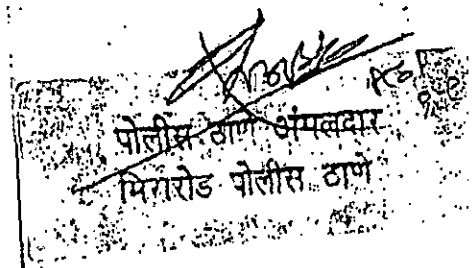 पोलीस ठाणे अंमलदार
मिरारोड पोलीस ठाणे